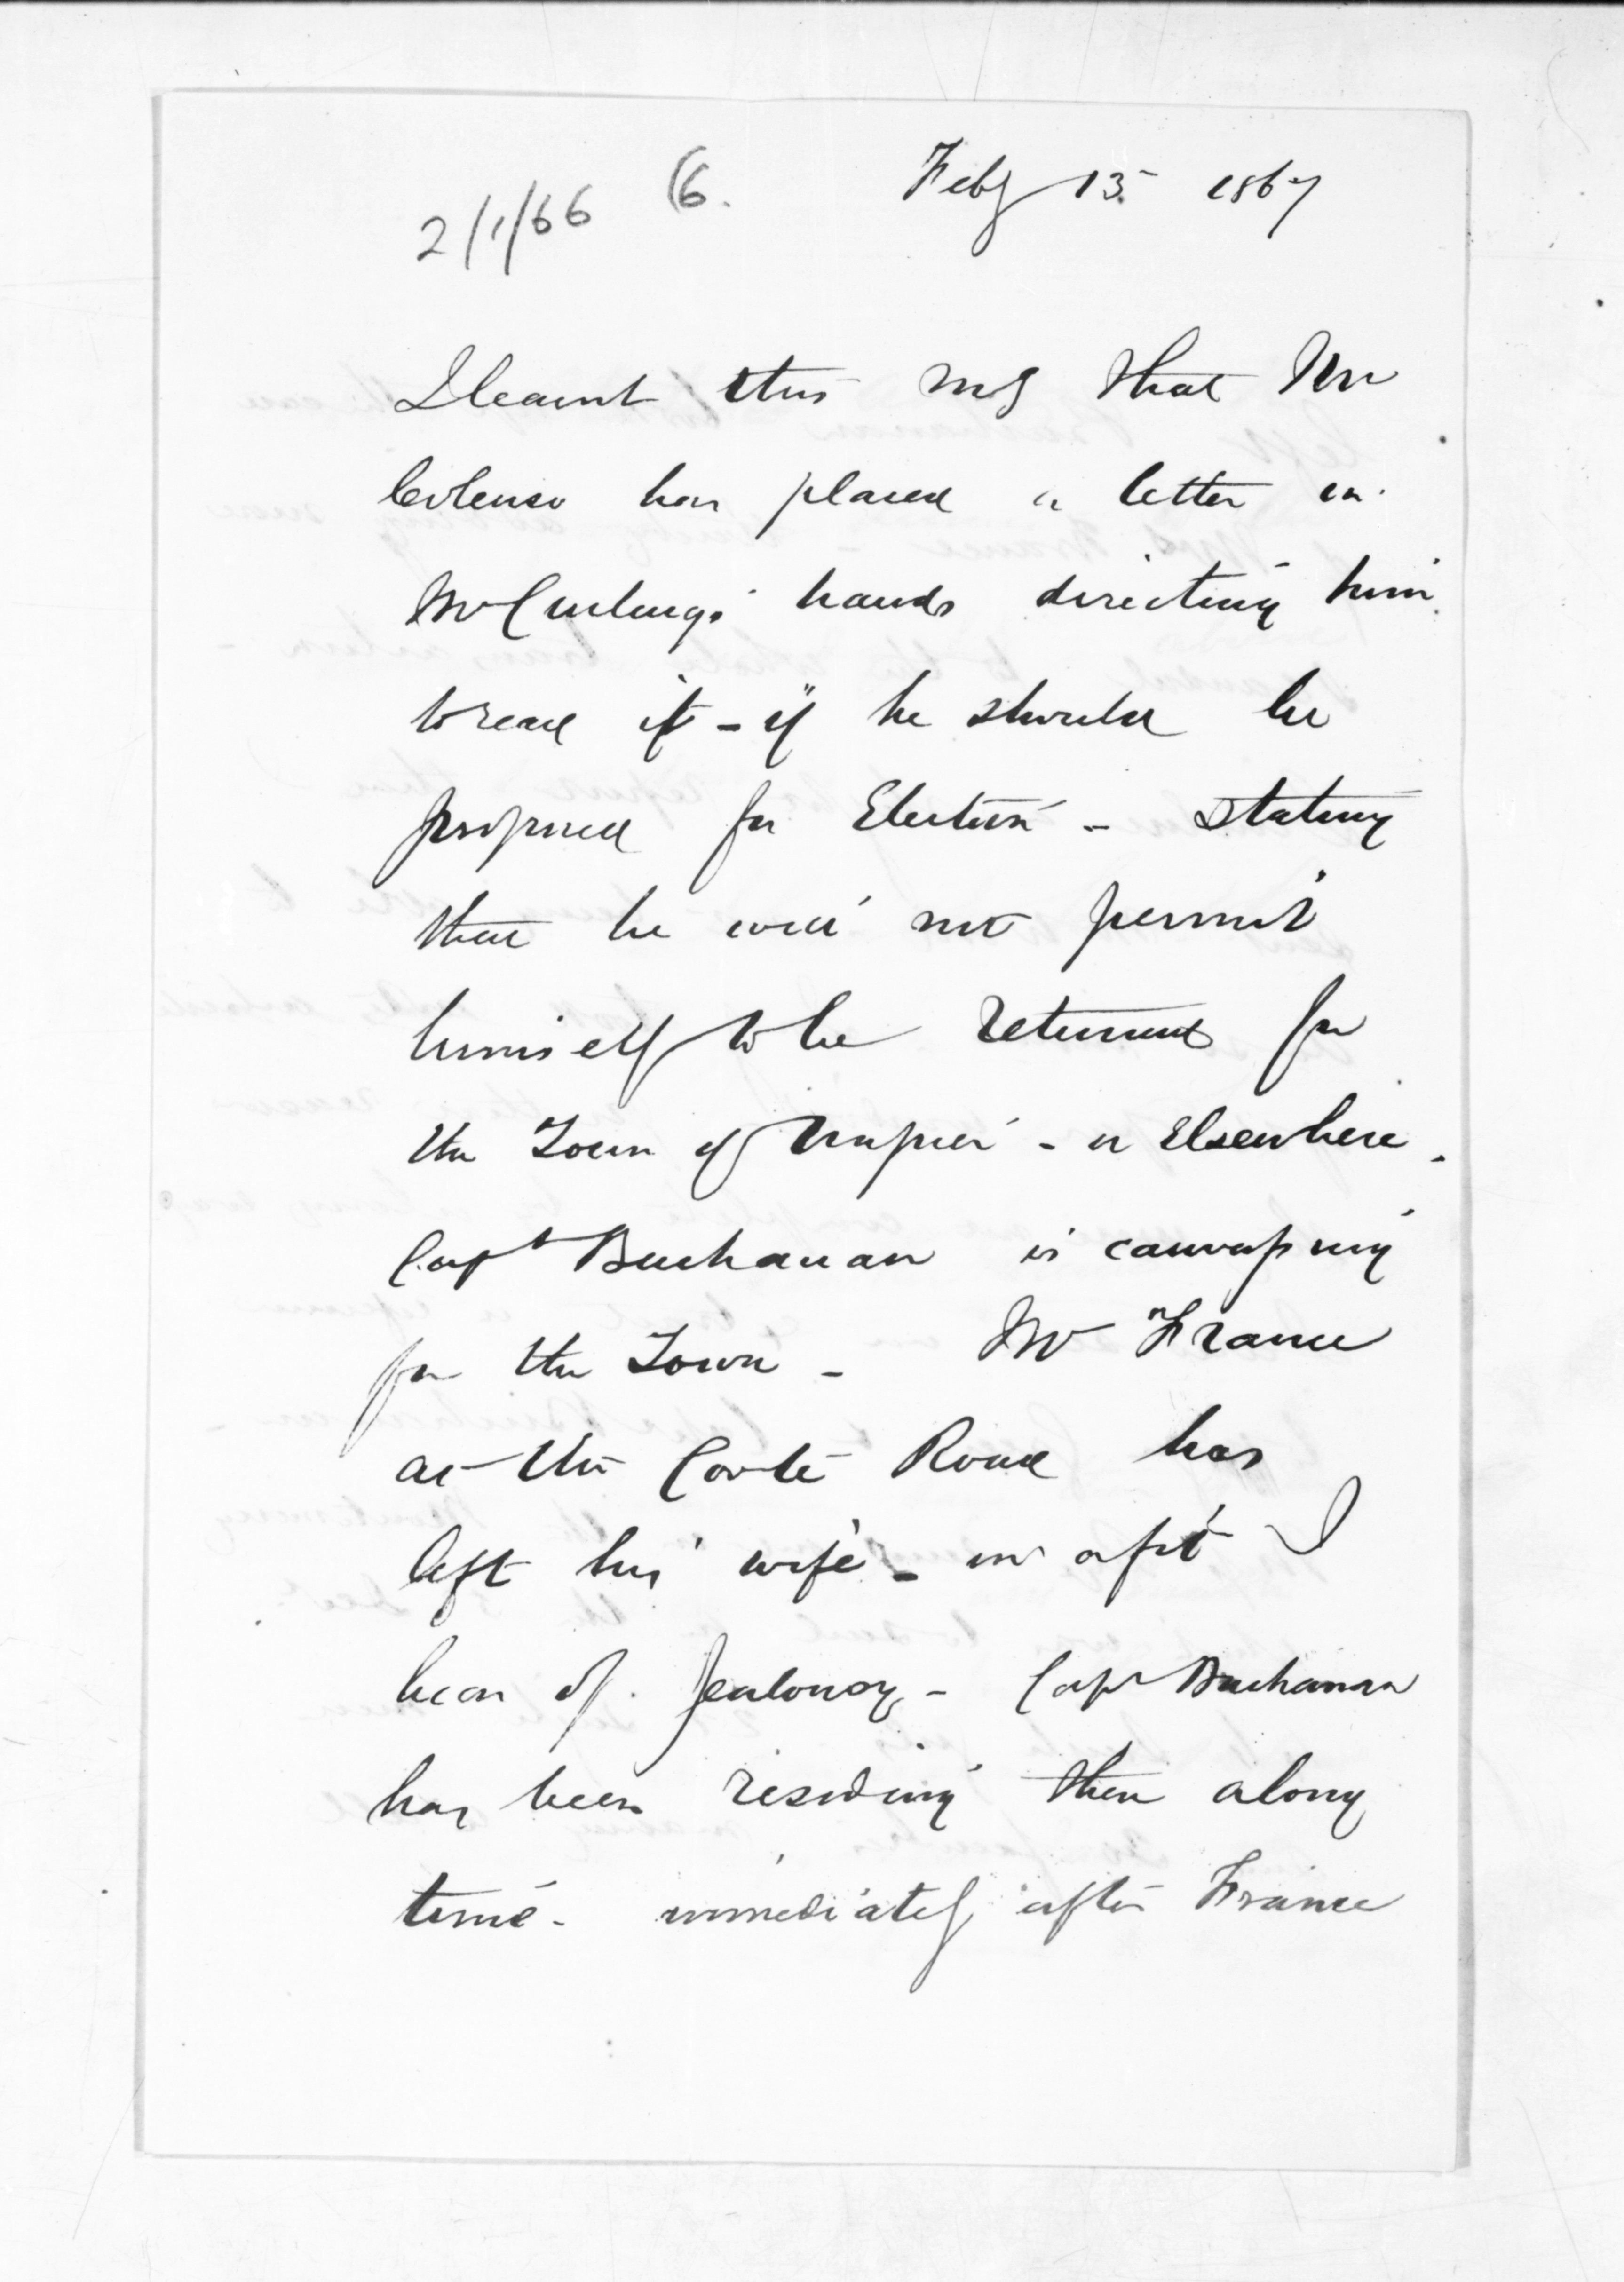 2/1/66 (6. Feby 13. 1867
I learnt this mg that Mr
Colenso has placed a letter in
Mr Curlings' hands directing him
to read it - if he should be
proposed for Election - stating
that he will not permit
himself to be returned for
the Town of Napier - or Elsewhere.
Capt Buchanan is canvassing
for the Town - Mr France
at the Road has
left his wife - in a fit I
hear of jealousy - Capt Buchanan
has been residing there a long
time - immediately after France